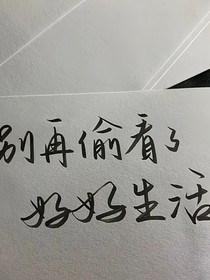 别再偷看了
好好生活